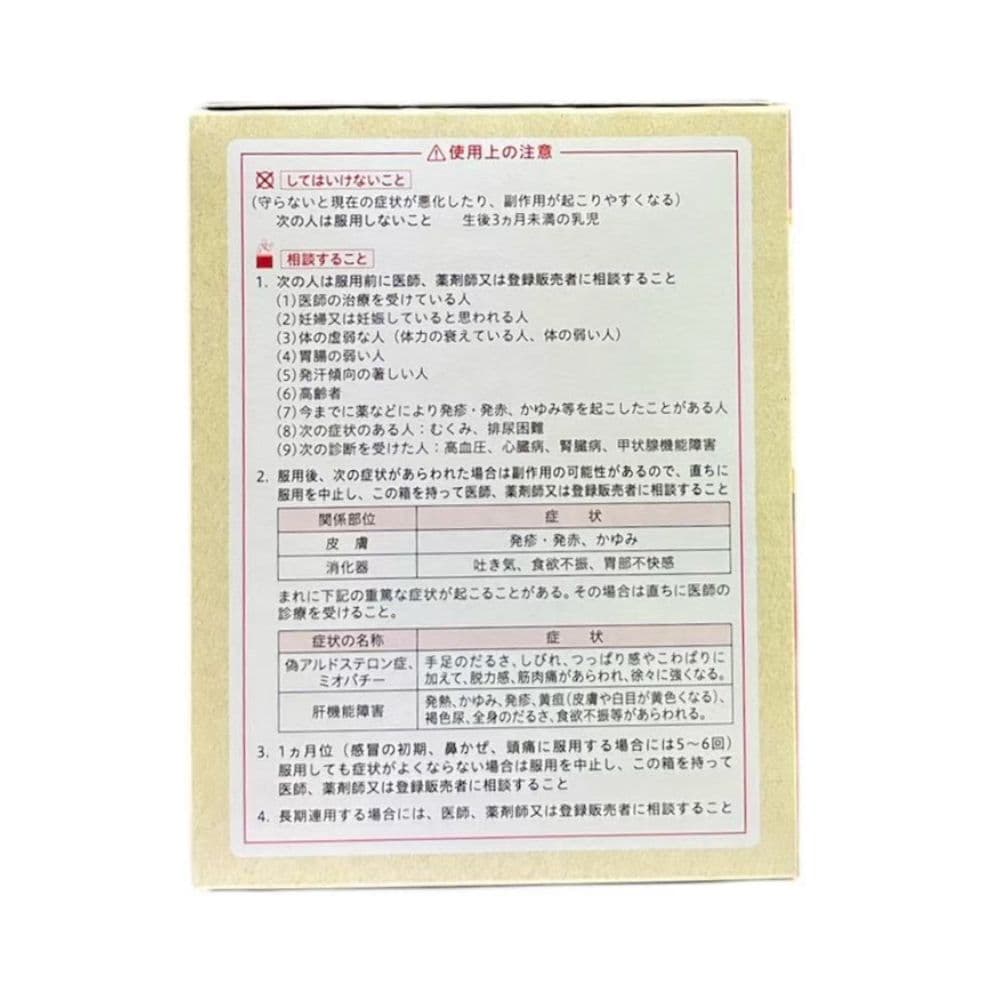 ⚠使用上の注意
してはいけないこと
（守らないと現在の症状が悪化したり、副作用が起こりやすくなる）
次の人は服用しないこと　生後3ヵ月未満の乳児
相談すること
1. 次の人は服用前に医師、薬剤師又は登録販売者に相談すること
（1）医師の治療を受けている人
（2）妊婦又は妊娠していると思われる人
（3）体の虚弱な人（体力の衰えている人、体の弱い人）
（4）胃腸の弱い人
（5）発汗傾向の著しい人
（6）高齢者
（7）今までに薬などにより発疹・発赤、かゆみ等を起こしたことがある人
（8）次の症状のある人：むくみ、排尿困難
（9）次の診断を受けた人：高血圧、心臓病、腎臓病、甲状腺機能障害
2. 服用後、次の症状があらわれた場合は副作用の可能性があるので、直ちに
服用を中止し、この箱を持って医師、薬剤師又は登録販売者に相談すること
関係部位　症　状
皮　膚　発疹・発赤、かゆみ
消化器　吐き気、食欲不振、胃部不快感
まれに下記の重篤な症状が起こることがある。その場合は直ちに医師の
診療を受けること。
症状の名称　症　状
偽アルドステロン症、　手足のだるさ、しびれ、つっぱり感やこわばりに
ミオパチー　加えて、脱力感、筋肉痛があらわれ、徐々に強くなる。
肝機能障害　発熱、かゆみ、発疹、黄疸（皮膚や白目が黄色くなる）、
褐色尿、全身のだるさ、食欲不振等があらわれる。
3. 1ヵ月位（感冒の初期、鼻かぜ、頭痛に服用する場合には5～6回）
服用しても症状がよくならない場合は服用を中止し、この箱を持って
医師、薬剤師又は登録販売者に相談すること
4. 長期連用する場合には、医師、薬剤師又は登録販売者に相談すること